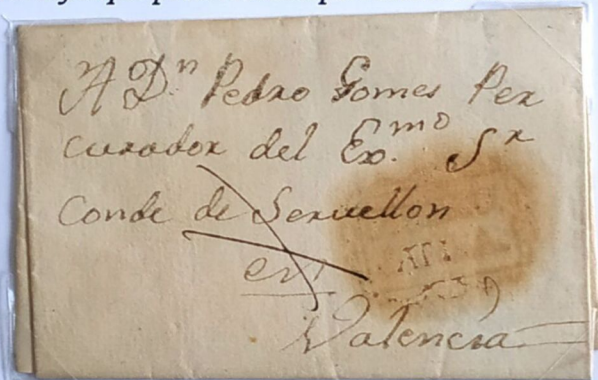 A Dn Pedro Gomes Per
curador del Exmo. Sr
Conde de Servellon
en
Valencia